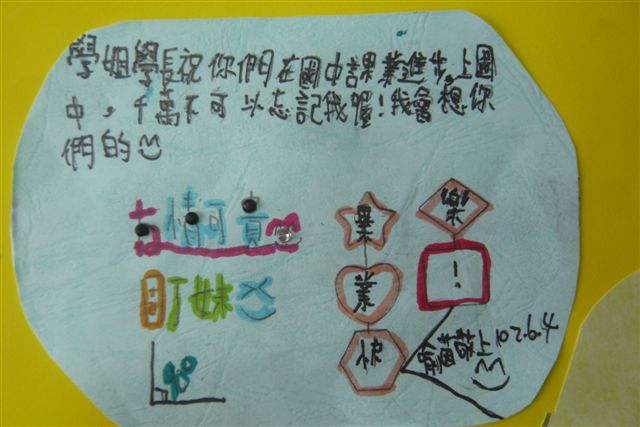 學姐學長祝你們在國中課業進步,上國
中,千萬不可以忘記我喔!我會想你
們的
情可貴
妹
90°
畢
業
快
樂
!
上102.6.4